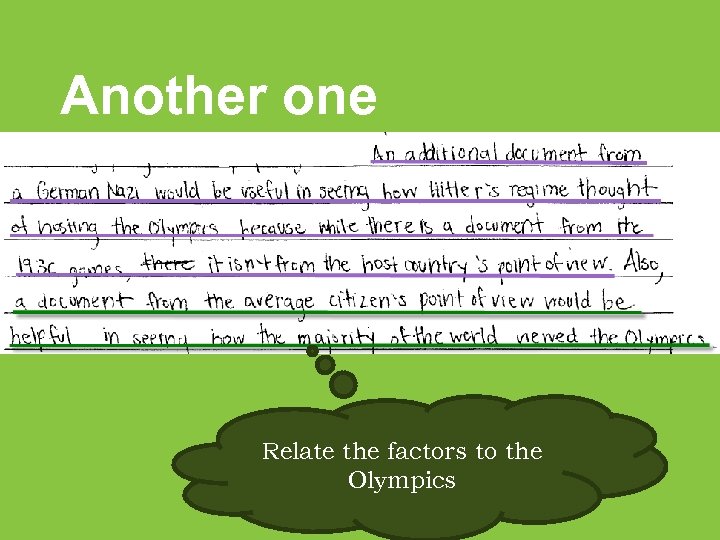 Another one
An additional document from
a German Nazi would be useful in seeing how Hitler's regime thought
of hosting the Olympics because while there is a document from the
1936 games, there it isn't from the host country's point of view. Also,
a document from the average citizen's point of view would be
helpful in seeing how the majority of the world viewed the Olympics
Relate the factors to the
Olympics